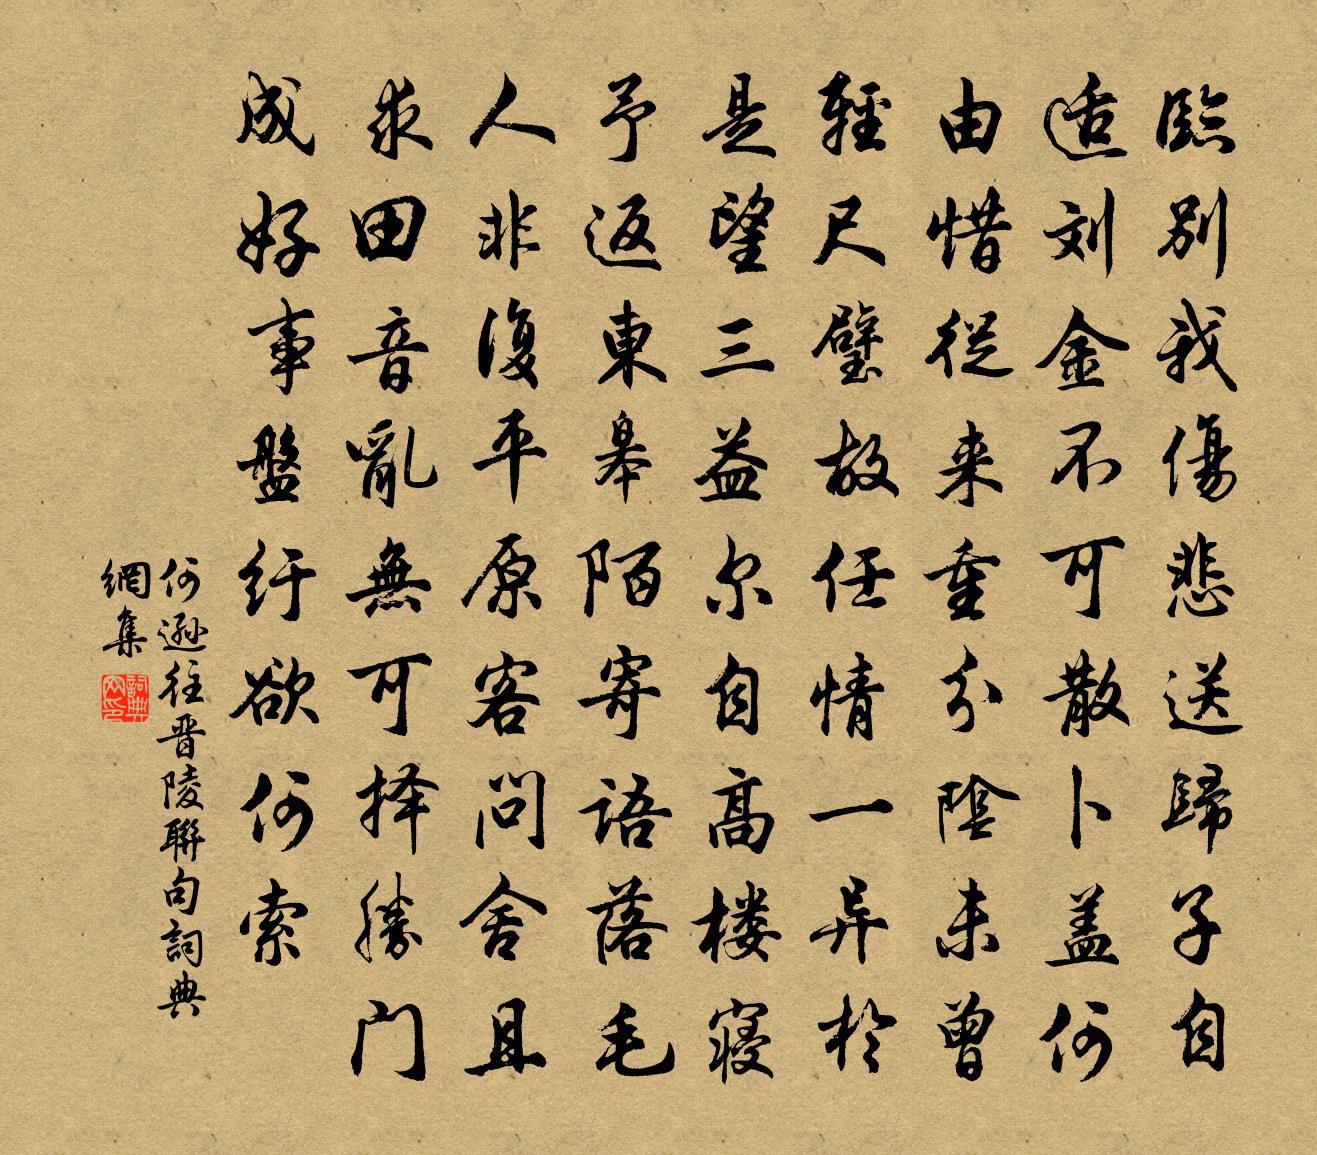 臨別我傷悲送歸子自
适刘金不可散卜盖何
由惜従来重分陰未曾
輕尺璧故任情一异於
是望三益尔自高楼寝
予返東皋陌寄語落毛
人非復平原客問舍且
求田音亂無可择勝門
成好事盤紆欲何索
何遜往晋陵聯句詞典
網集